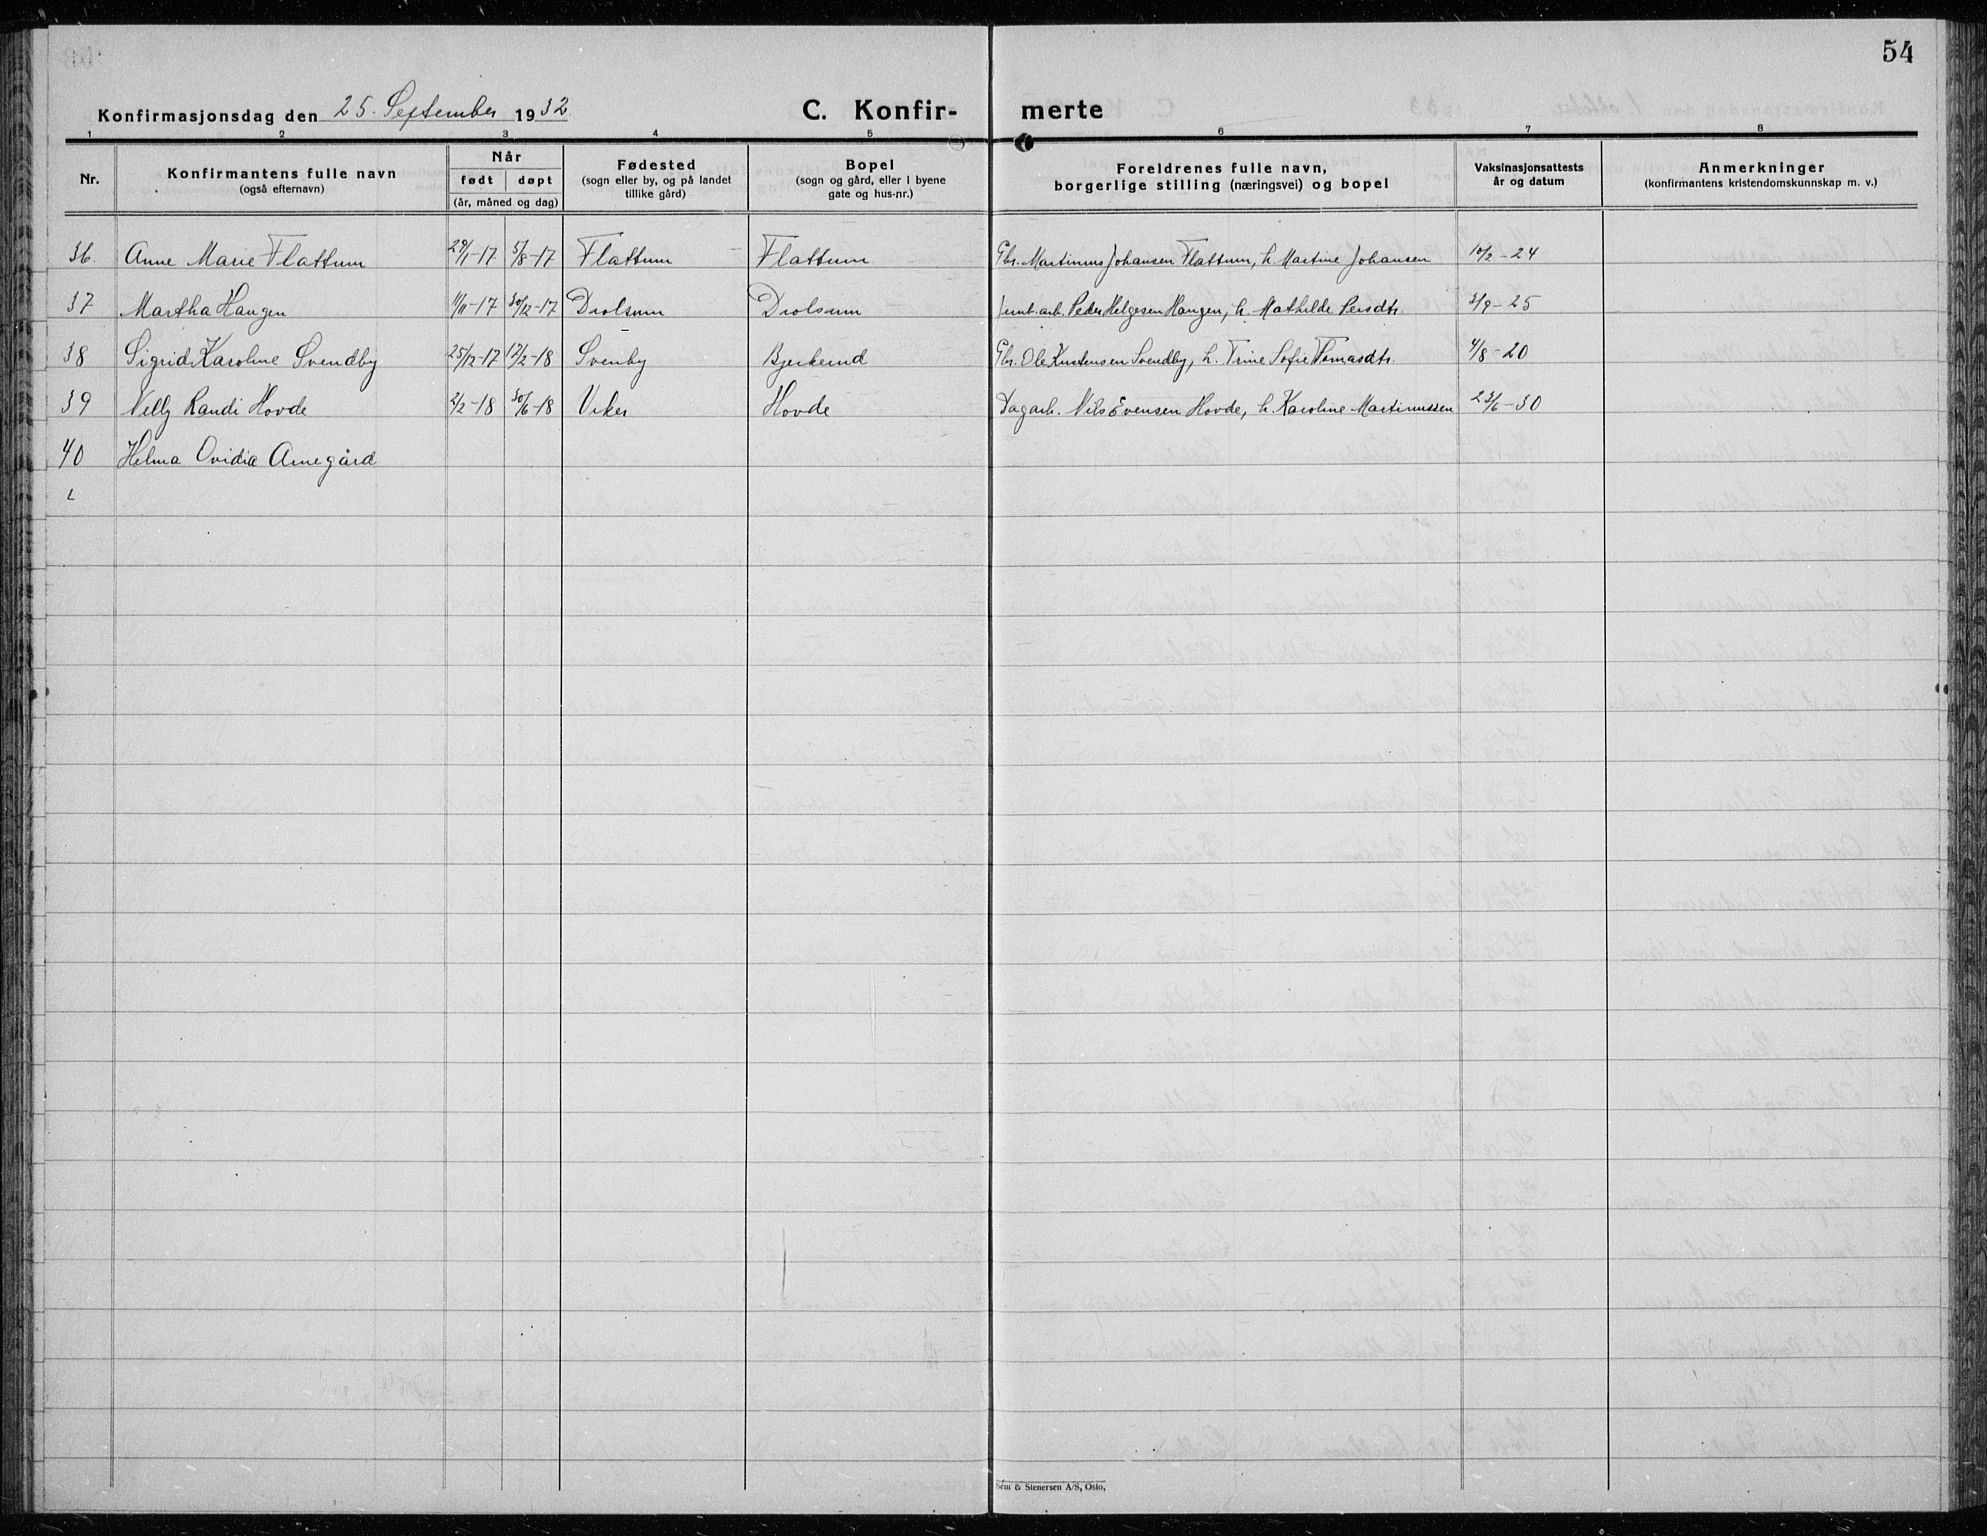 54
Konfirmasjonsdag den 25. September 1932
C. Konfir- merte
1 2 3 4 5 6 7 8
Nr.
Konfirmantens fulle navn
(også efternavn)
Når
født døpt
(år, måned og dag)
Fødested
(sogn eller by, og på landet
tillike gård)
Bopel
(sogn og gård, eller i byene
gate og hus-nr.)
Foreldrenes fulle navn,
borgerlige stilling (næringsvei) og bopel
Vaksinasjonsattests
år og datum
Anmerkninger
(konfirmantens kristendomskunnskap m. v.)
36. Anne Marie Flattum 29/1-17 5/8-17 Flattum Flattum Gbr. Martinius Johansen Flattum, h. Martine Johansen 10/2-24
37 Martha Haugen 11/11-17 30/12-17 Drolsum Drolsum Jernb.arb. Peder Helgesen Haugen, h. Mathilde Persdtr. 3/9-25
38 Sigrid Karoline Svendby 25/12-17 17/2-18 Svenby Bjerkend Gbr. Ole Kristensen Svendby, h. Trine Sofie Tomasdtr. 4/8-20
39 Nelly Randi Hovde 2/2-18 30/6-18 Viker Hovde Dagarb. Nils Evensen Hovde, h. Karoline Martinussen 23/6-30
40 Helma Ovidia Arnegård
Sem & Stenersen A/S, Oslo.